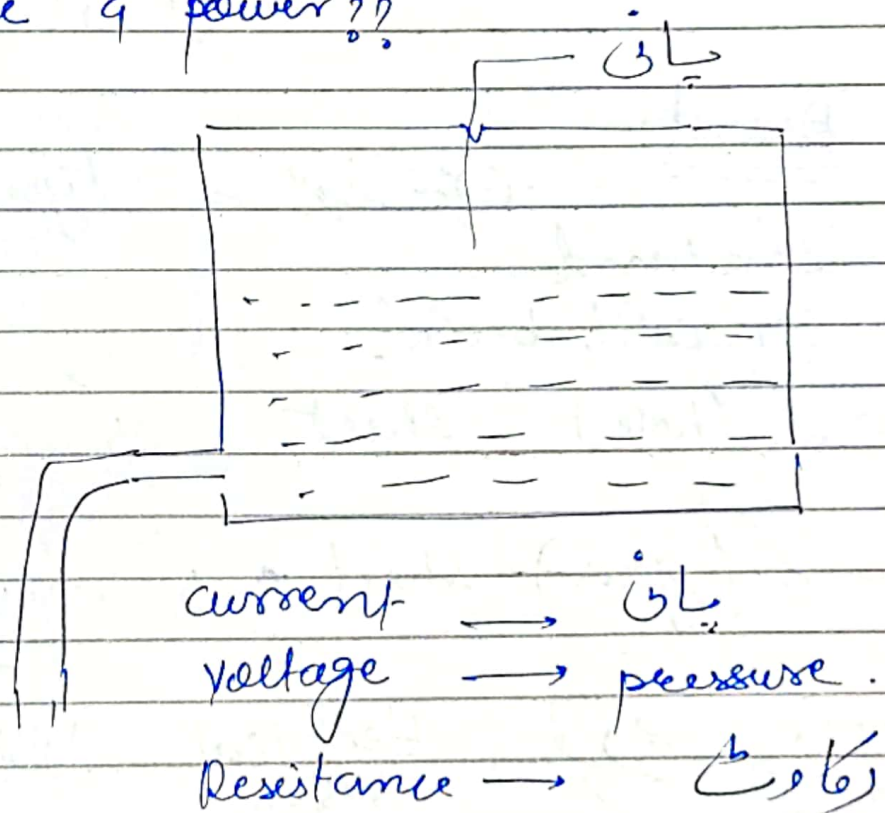 power??
پانی
current → پانی
voltage → pressure.
Resistance → رکاوٹ